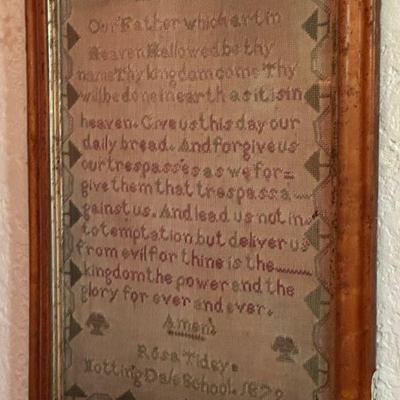 Our Father which art in
Heaven Hallowed be thy
name Thy kingdom come Thy
will be done in earth as it is in
heaven. Give us this day our
daily bread. And forgive us
our trespasses as we for=
give them that trespass a
gainst us. And lead us not in
to temptation but deliver us
from evil for thine is the
kingdom the power and the
glory for ever and ever.
Amen.
Rosa Tidey.
Notting Dale School. 1879